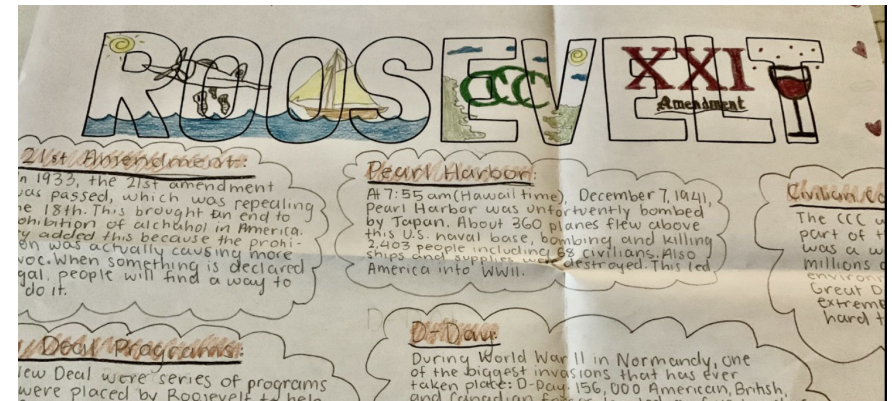 ROOSEVELT
CCC
XXI
Amendment
21st Amendment:
n 1933, the 21st amendment
was passed, which was repealing
he 18th. This brought an end to
ohibition of alchahol in America.
y added this because the prohi-
on was actually causing more
voc. When something is declared
gal, people will find a way to
do it.
Pearl Harbor:
At 7:55 am (Hawaii time), December 7, 1941,
Pearl Harbor was unfortuently bombed
by Japan. About 360 planes flew above
this U.S. naval base, bombing and killing
2,403 people including 68 civilians. Also
ships and supplies were destroyed. This led
America into WWII.
Civilian
The CCC
part of
was a
millions
environ
Great D
extreme
hard t
Deal Programs:
New Deal were series of programs
were placed by Roosevelt to help
D-Day
During World War II in Normandy, one
of the biggest invasions that has ever
taken place: D-Day. 156,000 American, British,
and Canadian